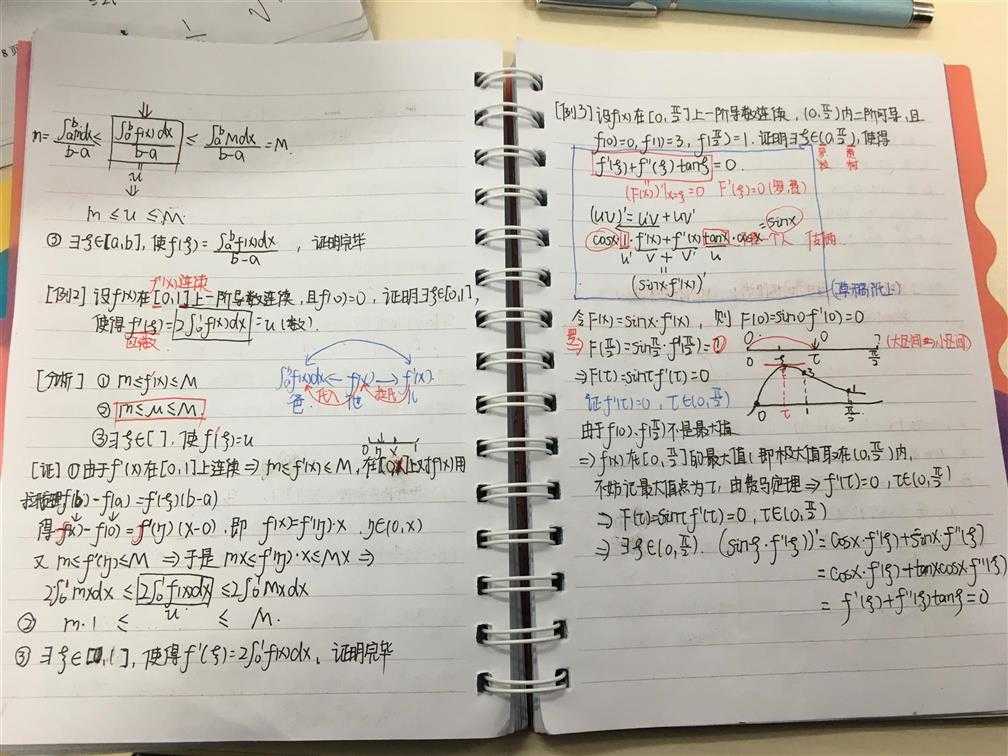 m = ∫ₐᵇ m dx / (b-a) ≤ ∫ₐᵇ f(x)dx / (b-a) ≤ ∫ₐᵇ M dx / (b-a) = M.
u
m ≤ u ≤ M.
③ ∃ξ∈[a,b], 使 f(ξ) = ∫ₐᵇ f(x)dx / (b-a) , 证明完毕
f'(x)连续
[例2] 设f(x)在[0,1]上一阶导数连续, 且f(0)=0, 证明∃ξ∈[0,1],
使得 f'(ξ) = 2∫₀¹f(x)dx = u (数)
[分析] ① m≤f'(x)≤M
∫₀¹f(x)dx ← f(x) → f'(x).
② m≤u≤M.
③∃ξ∈[ ], 使f'(ξ)=u
0 η x 1
[证] ①由于f'(x)在[0,1]上连续 ⇒ m≤f'(x)≤M, 在[0,x]上对f(x)用
拉格朗日 f(b)-f(a)=f'(ξ)(b-a)
得 f(x)-f(0)=f'(η)(x-0), 即 f(x)=f'(η)·x, η∈(0,x)
又 m≤f'(η)≤M ⇒于是 mx≤f'(η)·x≤Mx ⇒
2∫₀¹mxdx ≤ 2∫₀¹f(x)dx ≤ 2∫₀¹Mxdx
u
② m·1 ≤ ≤ M.
③ ∃ξ∈[0,1], 使得f'(ξ)=2∫₀¹f(x)dx, 证明完毕
[例3] 设f(x)在[0,π/2]上一阶导数连续, (0,π/2)内二阶可导, 且
f(0)=0, f(1)=3, f(π/2)=1. 证明∃ξ∈(0,π/2), 使得
f'(ξ)+f''(ξ)tanξ=0.
(F(x))'|x=ξ=0 F'(ξ)=0 (罗,费)
(uv)'=u'v+uv' =sinx
cosx·1·f'(x)+f''(x)tanx·cosx
u' v + v' u
(sinx·f'(x))'
(草稿纸上)
令F(x)=sinx·f'(x), 则 F(0)=sin0·f'(0)=0
⇒ F(π/2)=sinπ/2·f'(π/2)=
0 τ π/2 (大区间⇒小区间)
⇒F(τ)=sinτf'(τ)=0
证f'(τ)=0, τ∈(0,π/2)
0 τ 1 π/2
由于f(0).f(π/2)不是最大值
⇒ f(x)在[0,π/2]的最大值(即极大值取在(0,π/2)内,
不妨记最大值点为τ, 由费马定理⇒f'(τ)=0, τ∈(0,π/2)
⇒ F(τ)=sinτf'(τ)=0, τ∈(0,π/2)
⇒ ∃ξ∈(0,π/2). (sinξ·f'(ξ))'=cosx·f'(ξ)+sinx·f''(ξ)
=cosx·f'(ξ)+tanxcosx·f''(ξ)
= f'(ξ)+f''(ξ)tanξ=0